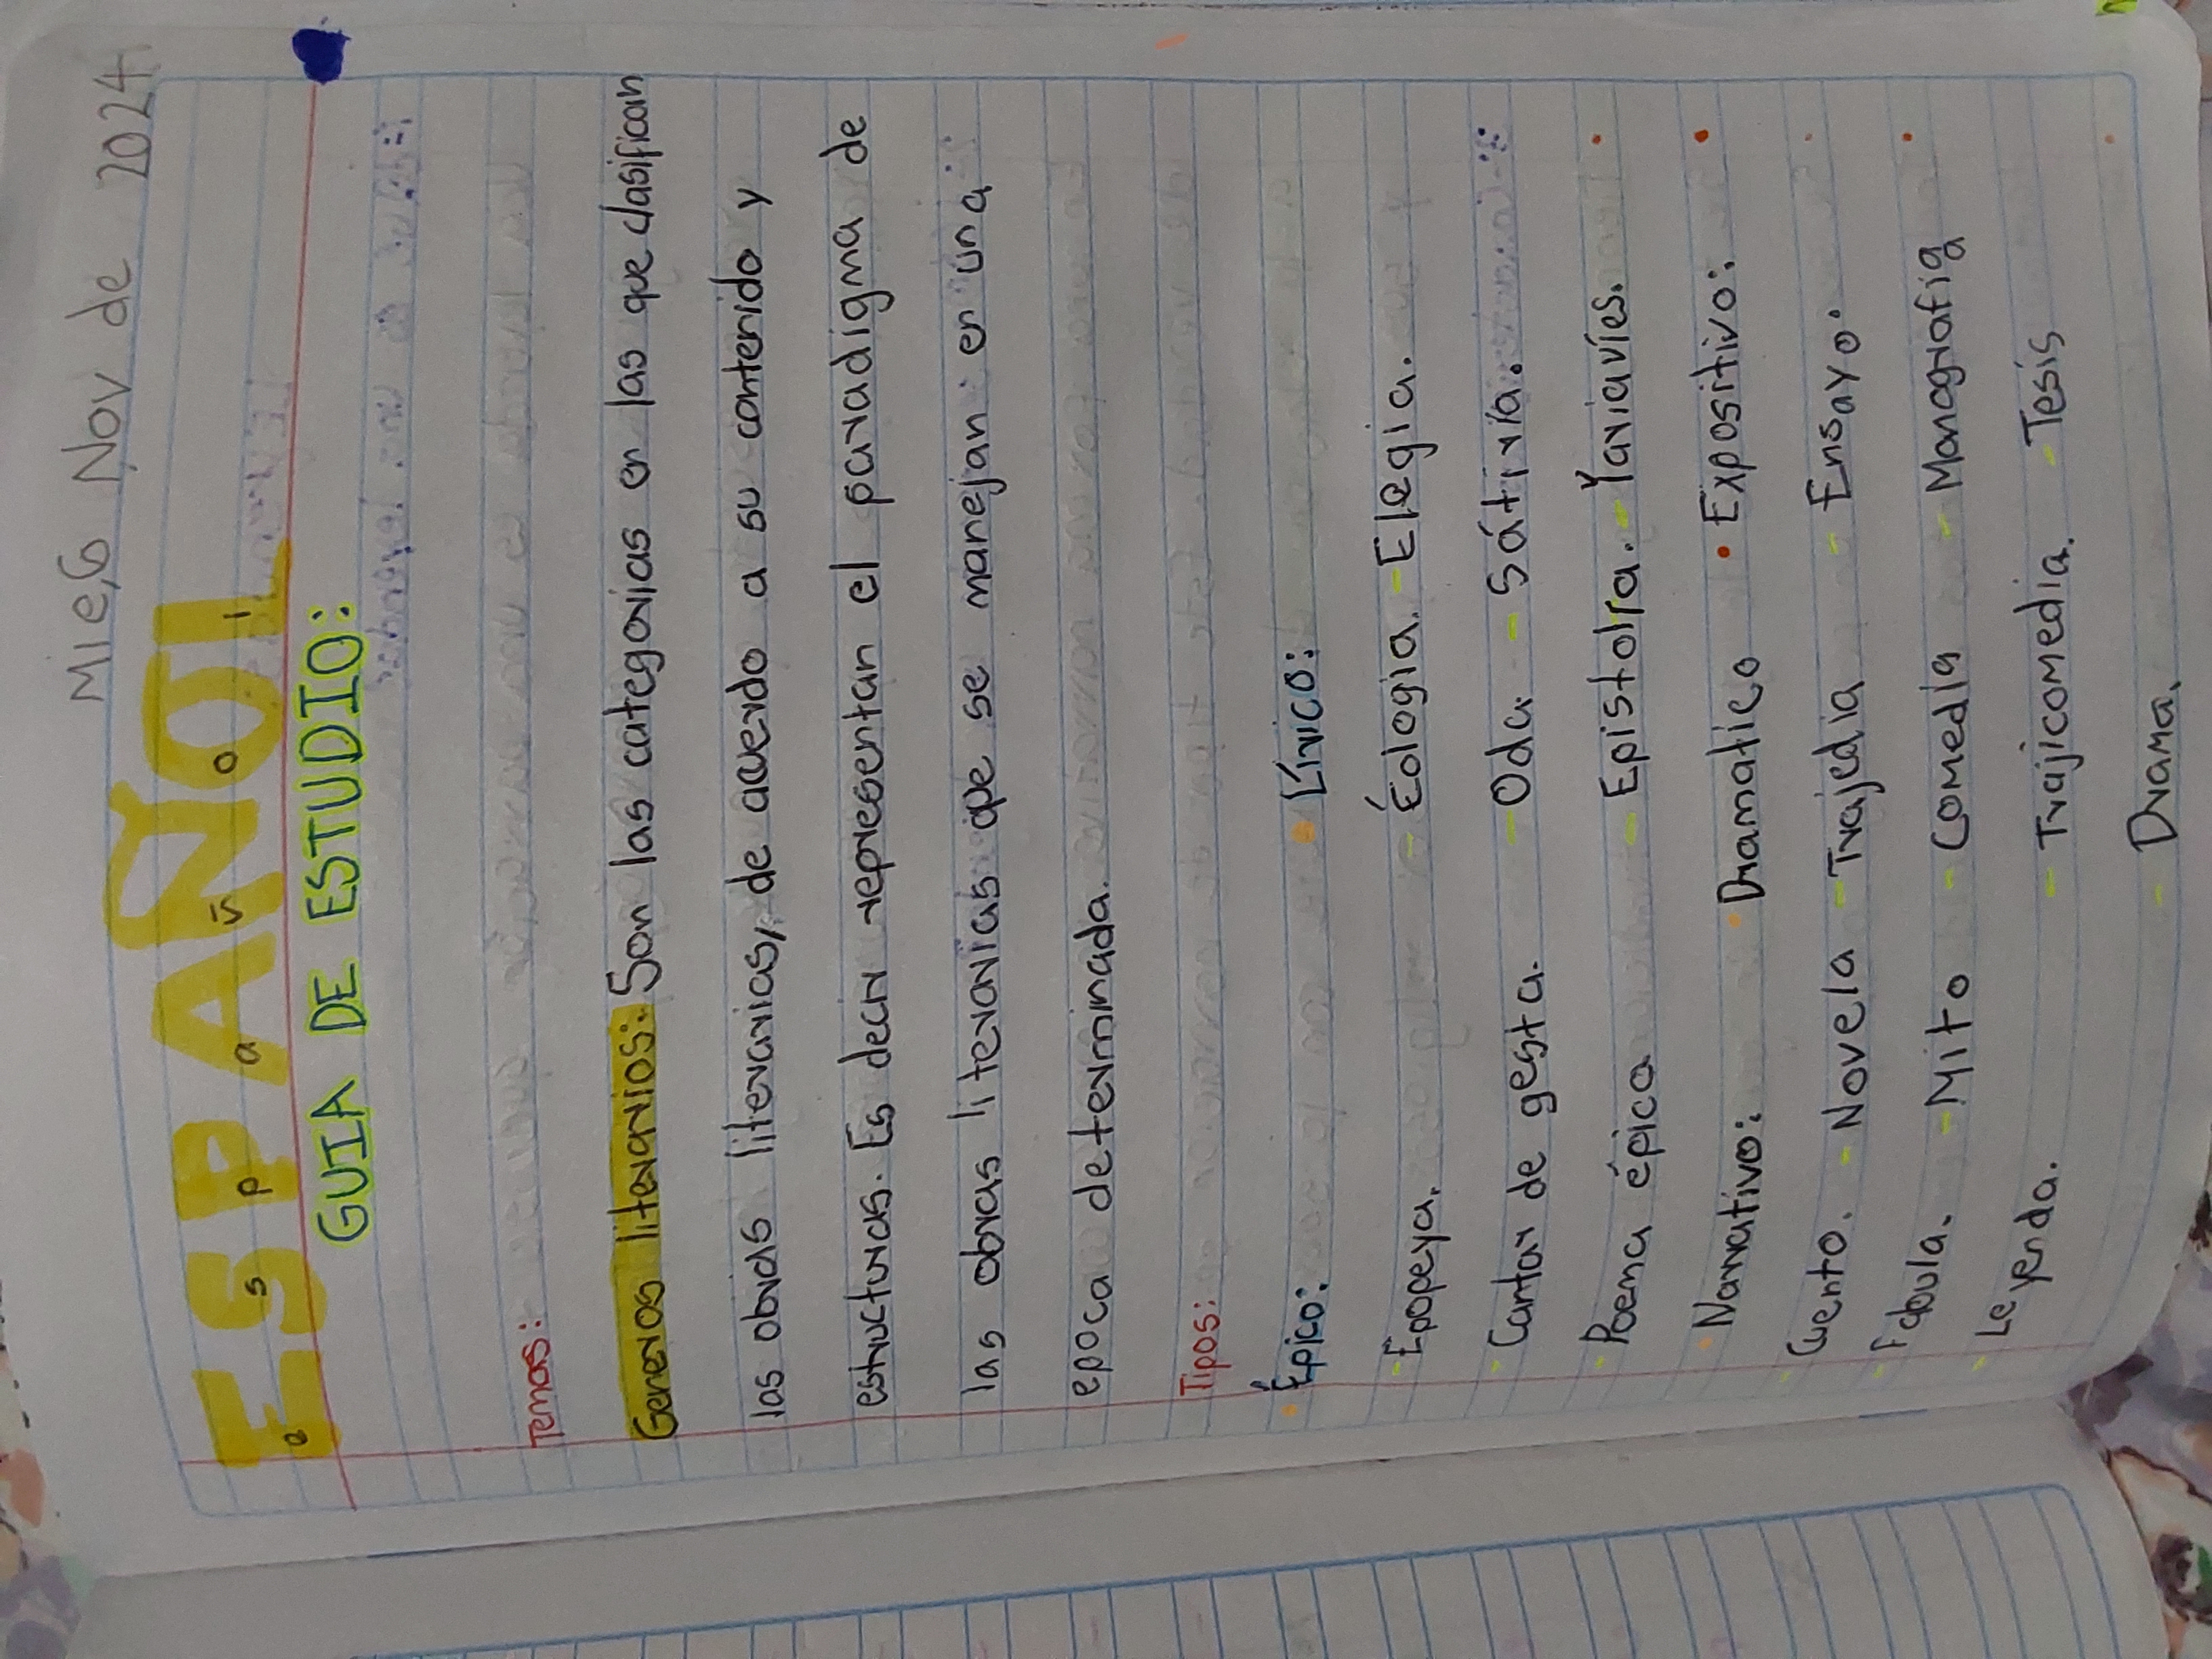 Mie,6 Nov de 2024
ESPAÑOl
e s p a ñ o l
GUIA DE ESTUDIO:
Temas:
Generos literarios: Son las categorias en las que clasifican
las obras literarias, de acuerdo a su contenido y
estructuras. Es decir representan el paradigma de
las obras literarias que se manejan en una
epoca determinada.
Tipos:
• Épico: • Lírico:
- Epopeya. - Éologia. - Elegia.
- Cantar de gesta. - Oda - Sátiria.
- Poema épica - Epistolra. - Yaviavíes.
• Narrativo: • Dramatico • Expositivo:
- Cuento. - Novela - Trajedia - Ensayo.
- Fabula. - Mito - Comedia - Monografia
- Leyenda. - Trajicomedia. - Tesis
- Drama.